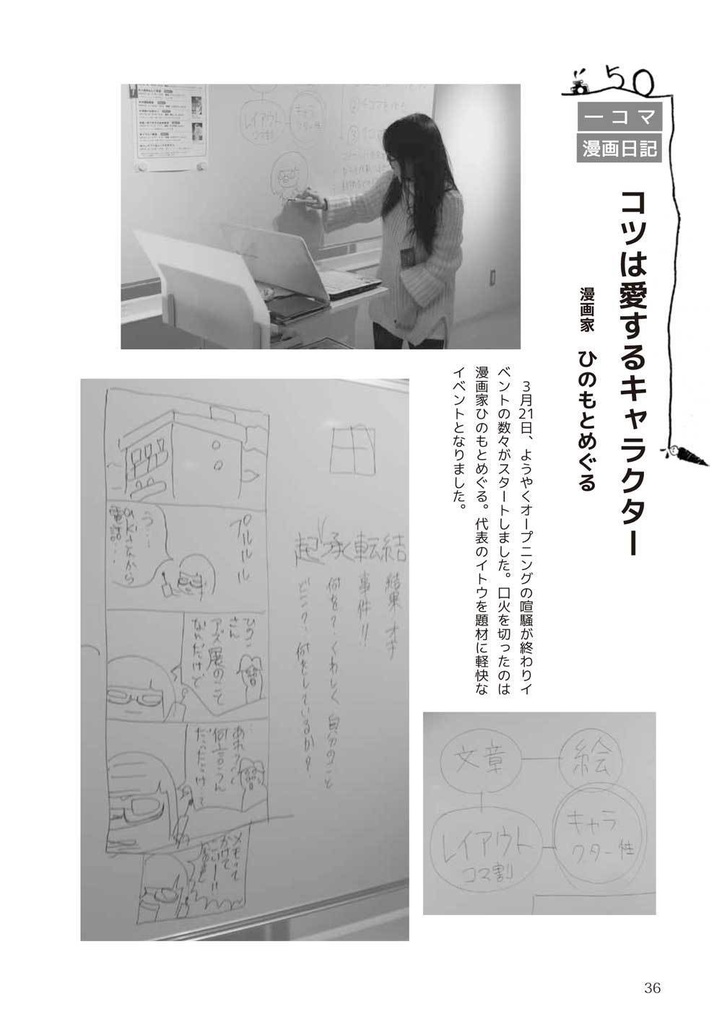 50
一コマ
漫画日記
コツは愛するキャラクター
漫画家 ひのもとめぐる
3月21日、ようやくオープニングの喧騒が終わりイ
ベントの数々がスタートしました。口火を切ったのは
漫画家ひのもとめぐる。代表のイトウを題材に軽快な
イベントとなりました。
レイアウト
コマ割
キャラ
クター性
起承転結
結果 オチ
事件!!
何を?くわしく 自分のこと
どこで、何をしているか?
プルルルル
う…
から
電話…
さん
アズ展のこと
なんだけど
文章
絵
レイアウト
コマ割り
キャラ
クター性
36